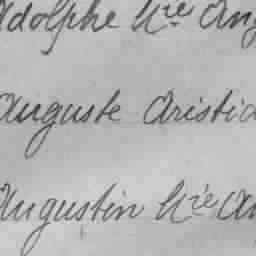 Adolphe Hte Aug
Auguste Aristid
Augustin Hte Au